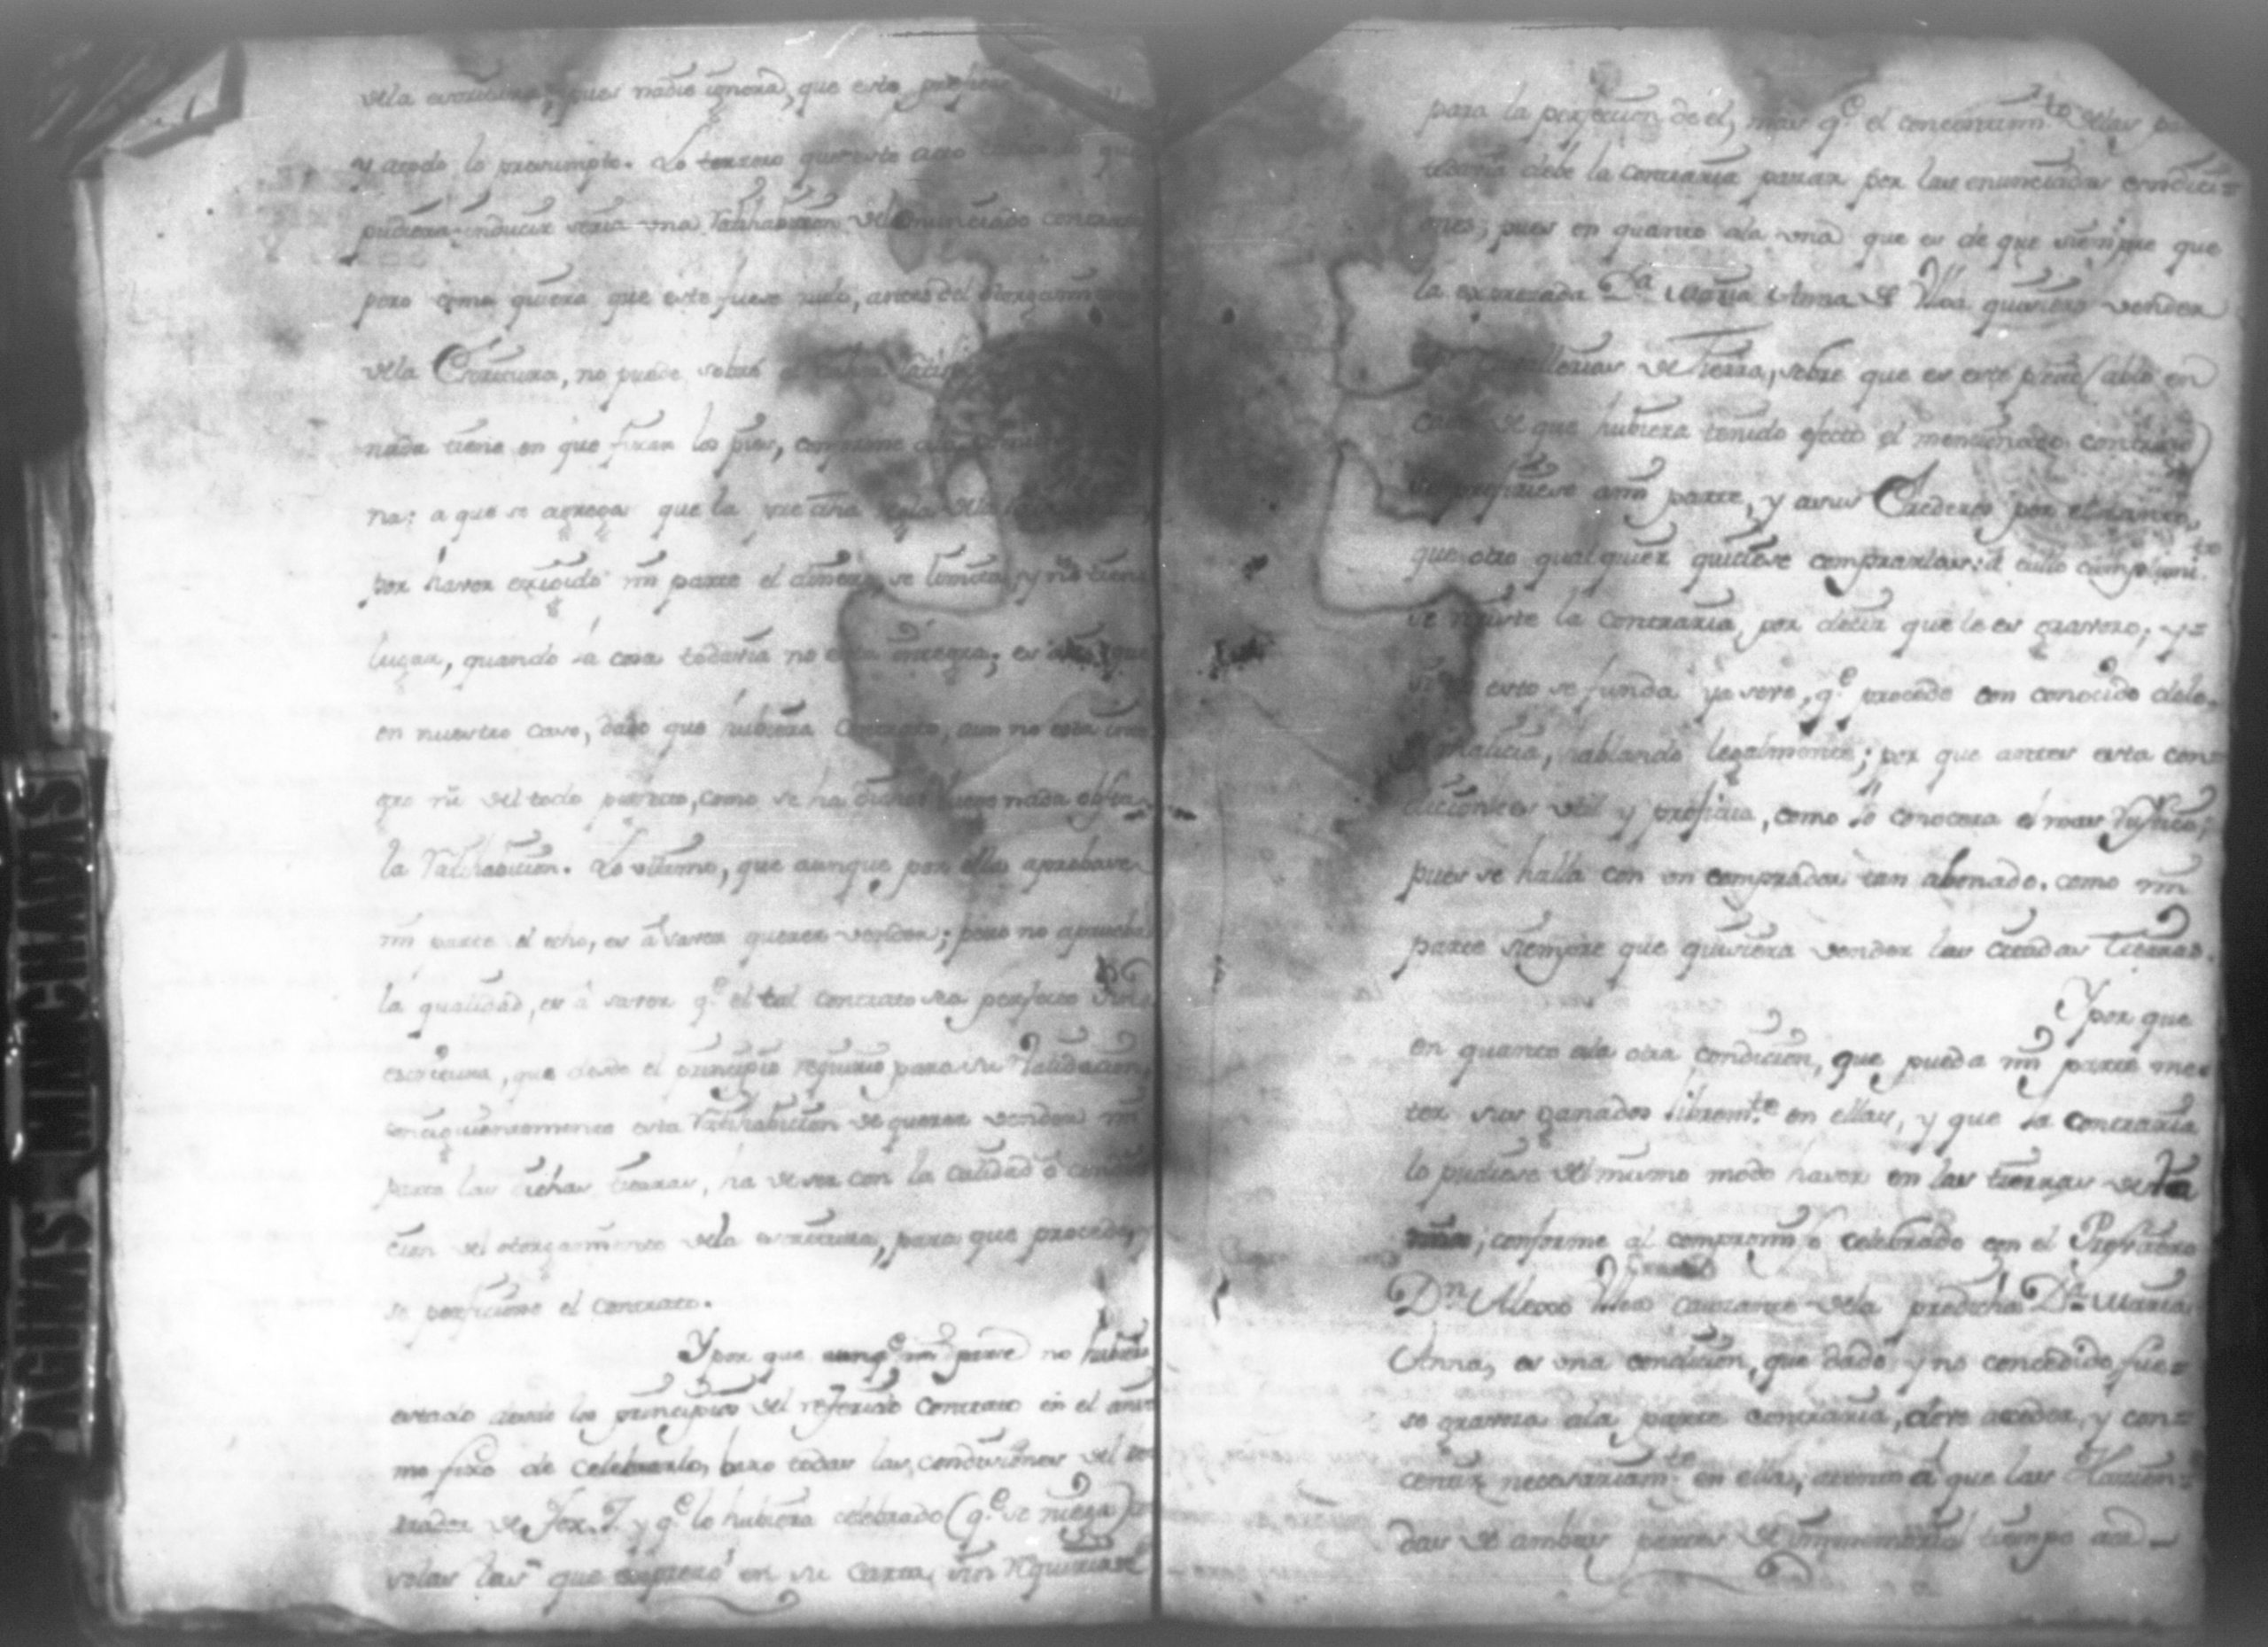 dela escritura, pues nadie ignora, que este
y acodo lo presumpto. Lo tercero que este acto
pudiera inducir seria una Ratihabicion del enunciado contrato
pero como quiera que este fuese nulo, antes del otorgamiento
dela Escritura, no puede sobre el
nada tiene en que fixar los pies, conforme
na: a que se agrega que la
por haver exigido mi parte el dinero, se limita, y no tiene
lugar, quando la cosa todavia no esta integra; es
en nuestro caso, dado que hubiera Contrato, aun no esta inte
gro ni del todo perfecto, como se ha dicho luego nada obsta
la Ratihabicion. Lo ultimo, que aunque por ella aprobase
mi parte el echo, es â saver querer vender; pero no aprueba
la qualidad, es â saver q.e el tal contrato sea perfecto sin
escritura, que desde el principio requirio para su Validacion
consiguientemente esta Ratihabicion de querer vender mi
parte las dichas tierras, ha de ser con la calidad ô condi
cion del otorgamiento dela escritura, para que proceda, y
se perficione el Contrato.
Y por que aunq.e mi parte no hubiera
estado desde los principios del referido Contrato en el ani
mo fixo de celebrarlo, baxo todas las condiciones del
de Fox. 7 y q.e lo hubiera celebrado (q.e se niega)
solas las que expresó en su Carta, sin requirirse
para la perfeccion de el, mas q.e el consentim.to delas par
debe la contraria pasar por las enunciadas condici=
ones; pues en quanto ala una que es de que siempre que
la expresada D.a Maria Anna de Ulloa quisiera vender
Cavallerias de Tierra, sobre que es este pleito (aun en
caso de que hubiera tenido efecto el mencionado contrato)
se prefiriese a mi parte, y a sus Erederos por el tanto,
que otro qualquier quisiese comprarlas: â cuio cumplimi.to
se resiste la contraria, por decir que le es gravoso; y =
si en esto se funda ya se ve, q.e procede con conocido dolo,
y malicia, hablando legalmente; por que antes esta con=
dicion le es util y proficua, como lo conocera el mas rustico;
pues se halla con un comprador tan abonado. como mi
parte siempre que quisiera vender las citadas tierras.
Y por que
en quanto ala otra condicion, que pueda mi parte me=
ter sus ganados librem.te en ellas, y que la contraria
lo pudiese del mismo modo haver en las tierras dela
mia; conforme al compromiso celebrado con el Presvitero
D.n Alexo Ulloa causante dela predicha D.a Maria
Anna, es una condicion, que dado, y no concedido fue=
se gravosa ala parte contraria, deve acceder, y con=
centir necesariam.te en ella, atento â que las Hacien=
das de ambas partes de immemorial tiempo aca -
PAGINAS MANCHADAS